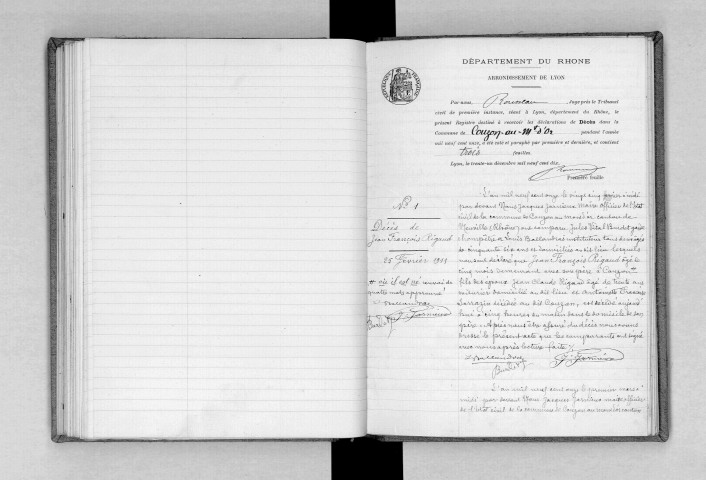 DÉPARTEMENT DU RHONE
ARRONDISSEMENT DE LYON
Par nous, Rousseau, Juge près le Tribunal
civil de première instance, séant à Lyon, département du Rhône, le
présent Registre destiné à recevoir les déclarations de Décès dans la
Commune de Couzon-au-Mt d'Or pendant l'année
mil neuf cent onze, a été coté et paraphé par première et dernière, et contient
trois feuilles.
Lyon, le trente-un décembre mil neuf cent dix.
Première feuille
No 1
Décès de
Jean François Rigaud
25 Février 1911
L'an mil neuf cent onze le vingt cinq février à midi
par devant Nous Jacques Jannieux maire officier de l'Etat
civil de la commune de Couzon au mont d'or canton de
Neuville Rhône, ont comparu Jules Vital Burdet garde
champêtre et Louis Ballandras instituteur tous deux âgés
de cinquante six ans et domiciliés au dit lieu lesquels
nous ont déclaré que Jean François Rigaud âgé de
cinq mois demeurant avec son père à Couzon
fils des époux Jean Claude Rigaud âgé de trente ans
domicilié au dit lieu et Antoinette
Sarrazin décédée au dit Couzon, est décédé aujourd'
hui à cinq heures du matin dans le domicile de son
père. Après nous être assuré du Décès nous avons
dressé le présent acte que les comparants ont signé
avec nous après lecture faite
où il est né
quatre mots approuvés
L'an mil neuf cent onze le premier mars à
midi par devant Nous Jacques Jannieux maire officier
de l'Etat civil de la commune de Couzon au mont d'or canton